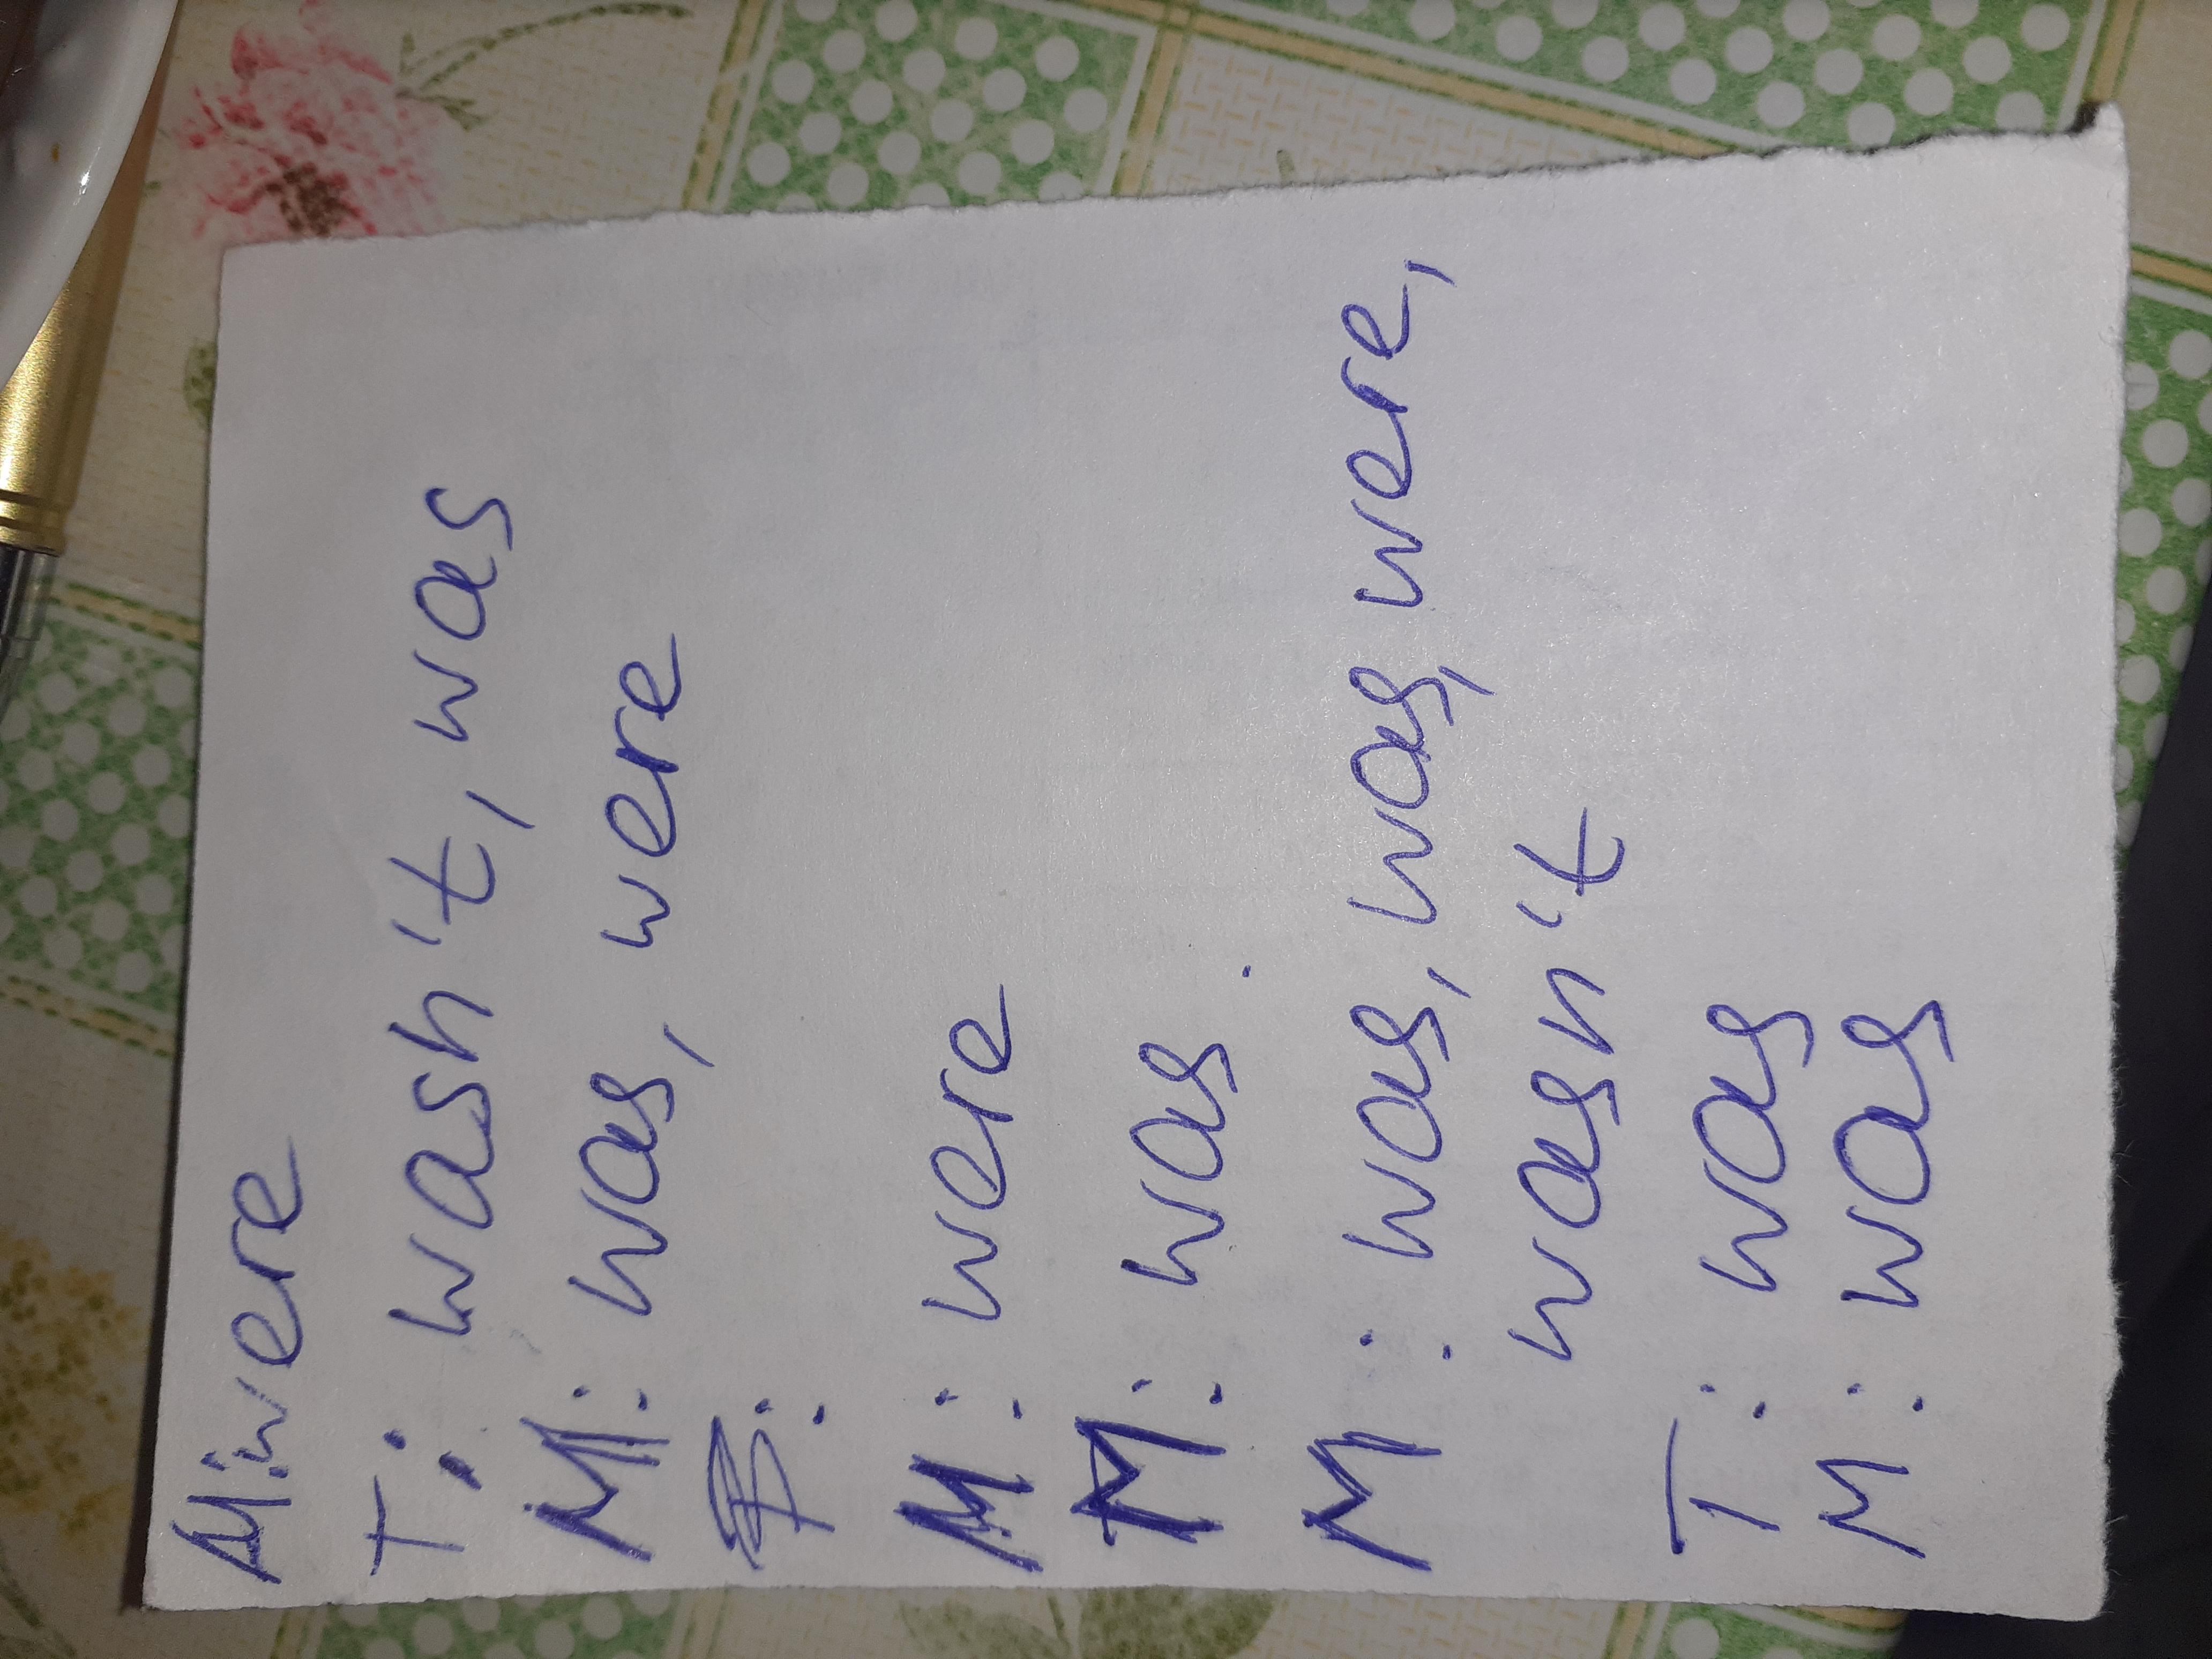 M: were
T: wasn't, was
M: was, were
:
M: were
M: was.
M: was, was, were,
wasn't
T: was
M: was